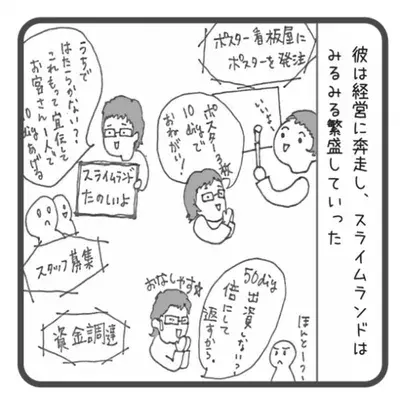 彼は経営に奔走し、スライムランドは
みるみる繁盛していった
ポスター看板屋に
ポスターを発注
いいよ
ポスター3枚
10digで
おねがい!
うちで
はたらかない?
これもって宣伝して
お客さん1人で
10digあげる
スライムランド
たのしいよ
スタッフ募集
50dig
出資しない?
倍にして
返すから。
おなしゃす☆
ほんとー?
資金調達